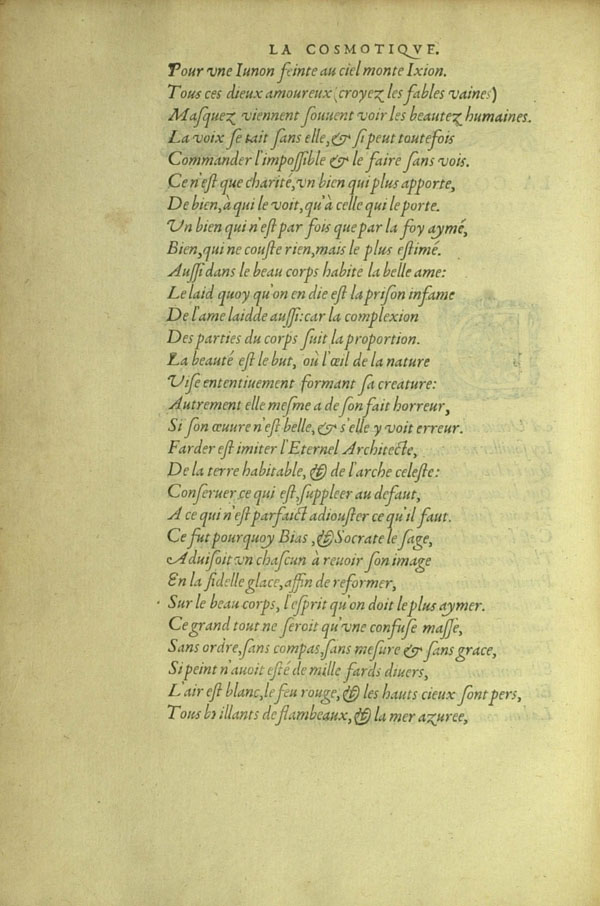 LA COSMOTIQVE.
Pour vne Iunon feinte au ciel monte Ixion.
Tous ces dieux amoureux (croyez les fables vaines)
Maſquez viennent ſouuent voir les beautez humaines.
La voix ſe tait ſans elle, & ſi peut toutefois
Commander l'impoſſible & le faire ſans vois.
Ce n'eſt que charité, vn bien qui plus apporte,
De bien, à qui le voit, qu'à celle qui le porte.
Vn bien qui n'eſt par fois que par la foy aymé,
Bien, qui ne couſte rien, mais le plus eſtimé.
Auſſi dans le beau corps habite la belle ame:
Le laid quoy qu'on en die eſt la priſon infame
De l'ame laidde auſſi: car la complexion
Des parties du corps ſuit la proportion.
La beauté eſt le but, où l'œil de la nature
Viſe ententiuement formant ſa creature:
Autrement elle meſme a de ſon fait horreur,
Si ſon œuure n'eſt belle, & s'elle y voit erreur.
Farder eſt imiter l'Eternel Architecte,
De la terre habitable, & de l'arche celeſte:
Conſeruer ce qui eſt, ſuppleer au defaut,
A ce qui n'eſt parfaict adiouſter ce qu'il faut.
Ce fut pourquoy Bias, & Socrate le ſage,
Aduiſoit vn chaſcun à reuoir ſon image
En la fidelle glace, affin de reformer,
Sur le beau corps, l'eſprit qu'on doit le plus aymer.
Ce grand tout ne ſeroit qu'vne confuſe maſſe,
Sans ordre, ſans compas, ſans meſure & ſans grace,
Si peint n'auoit eſté de mille fards diuers,
L'air eſt blanc, le feu rouge, & les hauts cieux ſont pers,
Tous brillants de flambeaux, & la mer azuree,